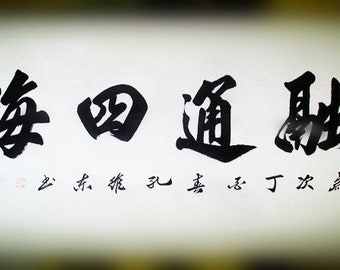 融通四海
岁次丁酉春孔维东书